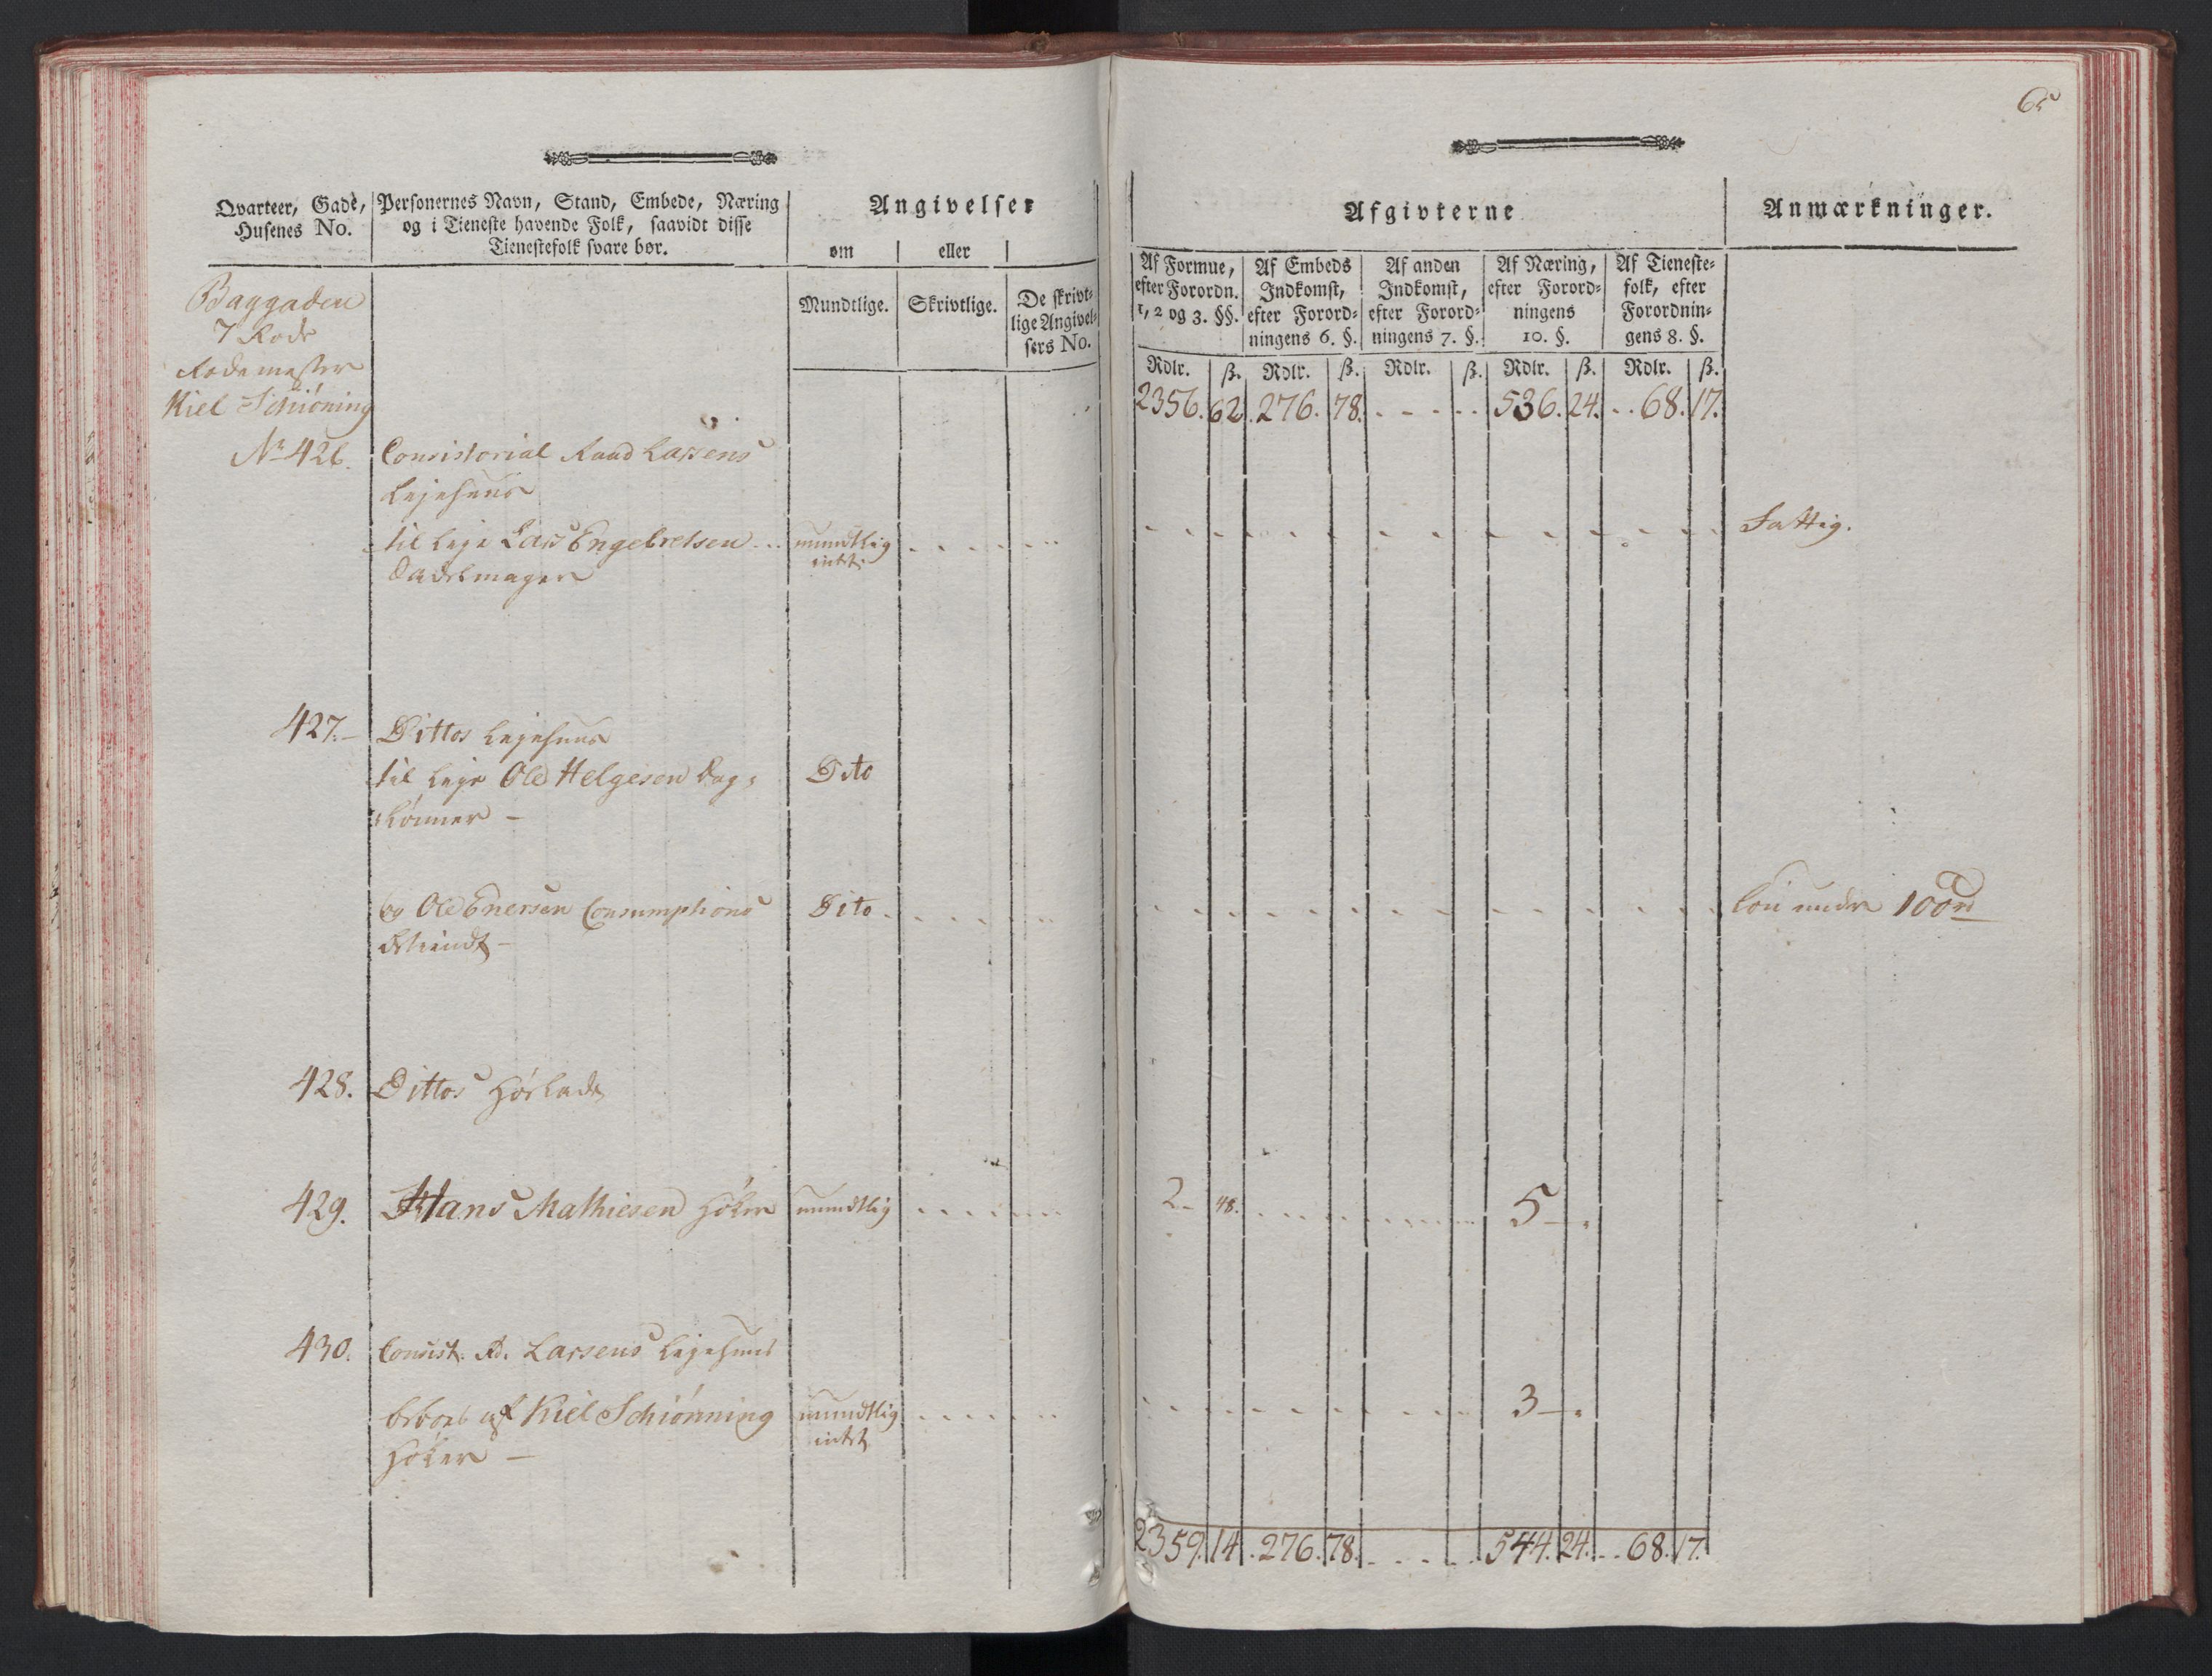 65
Qvarteer, Gade,
Husenes No.
Personernes Navn, Stand, Embede, Næring
og i Tieneste havende Folk, saavidt disse
Tienestefolk svare bør.
Angivelser
om eller
Mundtlige. Skrivtlige. De skrivt-
lige Angivel-
sers No.
Afgivterne
Anmærkninger.
Af Formue,
efter Forordn.
1, 2 og 3. §§.
Af Embeds
Indkomst,
efter Forord-
ningens 6. §.
Af anden
Indkomst,
efter Forord-
ningens 7. §.
Af Næring,
efter Forord-
ningens
10. §.
Af Tieneste-
folk, efter
Forordnin-
gens 8. §.
Rdlr. ß. Rdlr. ß. Rdlr. ß. Rdlr. ß. Rdlr. ß.
Baggaden
7 Rode
Rodemester
Kiel Schiöning
2356. 62. 276. 78. 536. 24. 68. 17.
No 426. Consistorial Raad Lassens
Lejehuus
til Leje Lars Engebretsen mundtlig Fattig.
intet.
427. Dittos Lejehuus
til Leje Ole Helgesen Dag- Dito
og Ole Enersen Consumptions Dito Løn under 100rd
428. Dittos Høelade
429. Hans Mathiesen Høker mundtlig 2 48. 5
430. Consist. R. Lassens Lejehuus
beboes af Kiel Schiönning mundtlig 3
intet
Høker
2359. 14. 276. 78. 544. 24. 68. 17.